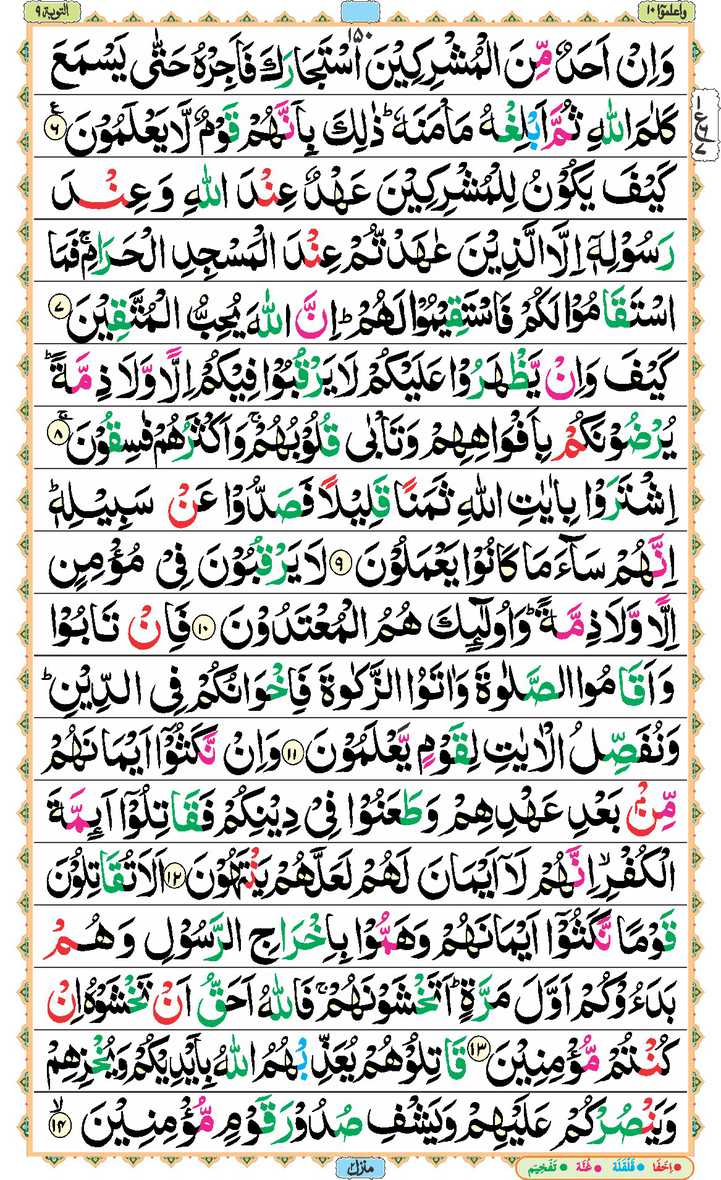 واعلموٓا ١٠
التوبة ٩
١٥٠
وَاِنْ اَحَدٌ مِّنَ الْمُشْرِكِيْنَ اسْتَجَارَكَ فَاَجِرْهُ حَتّٰى يَسْمَعَ
كَلٰمَ اللّٰهِ ثُمَّ اَبْلِغْهُ مَاْمَنَهٗ ؕ ذٰلِكَ بِاَنَّهُمْ قَوْمٌ لَّا يَعْلَمُوْنَ ۠ ٦
كَيْفَ يَكُوْنُ لِلْمُشْرِكِيْنَ عَهْدٌ عِنْدَ اللّٰهِ وَعِنْدَ
رَسُوْلِهٖۤ اِلَّا الَّذِيْنَ عٰهَدْتُّمْ عِنْدَ الْمَسْجِدِ الْحَرَامِ ۚ فَمَا
اسْتَقَامُوْا لَكُمْ فَاسْتَقِيْمُوْا لَهُمْ ؕ اِنَّ اللّٰهَ يُحِبُّ الْمُتَّقِيْنَ ٧
كَيْفَ وَاِنْ يَّظْهَرُوْا عَلَيْكُمْ لَا يَرْقُبُوْا فِيْكُمْ اِلًّا وَّلَا ذِمَّةً ؕ
يُرْضُوْنَكُمْ بِاَفْوَاهِهِمْ وَتَاْبٰى قُلُوْبُهُمْ ۚ وَاَكْثَرُهُمْ فٰسِقُوْنَ ۚ ٨
اِشْتَرَوْا بِاٰيٰتِ اللّٰهِ ثَمَنًا قَلِيْلًا فَصَدُّوْا عَنْ سَبِيْلِهٖ ؕ
اِنَّهُمْ سَآءَ مَا كَانُوْا يَعْمَلُوْنَ ٩ لَا يَرْقُبُوْنَ فِيْ مُؤْمِنٍ
اِلًّا وَّلَا ذِمَّةً ؕ وَاُولٰٓئِكَ هُمُ الْمُعْتَدُوْنَ ١٠ فَاِنْ تَابُوْا
وَاَقَامُوا الصَّلٰوةَ وَاٰتَوُا الزَّكٰوةَ فَاِخْوَانُكُمْ فِى الدِّيْنِ ؕ
وَنُفَصِّلُ الْاٰيٰتِ لِقَوْمٍ يَّعْلَمُوْنَ ١١ وَاِنْ نَّكَثُوْۤا اَيْمَانَهُمْ
مِّنْۢ بَعْدِ عَهْدِهِمْ وَطَعَنُوْا فِيْ دِيْنِكُمْ فَقَاتِلُوْۤا اَئِمَّةَ
الْكُفْرِ ۙ اِنَّهُمْ لَاۤ اَيْمَانَ لَهُمْ لَعَلَّهُمْ يَنْتَهُوْنَ ١٢ اَلَا تُقَاتِلُوْنَ
قَوْمًا نَّكَثُوْۤا اَيْمَانَهُمْ وَهَمُّوْا بِاِخْرَاجِ الرَّسُوْلِ وَهُمْ
بَدَءُوْكُمْ اَوَّلَ مَرَّةٍ ؕ اَتَخْشَوْنَهُمْ ۚ فَاللّٰهُ اَحَقُّ اَنْ تَخْشَوْهُ اِنْ
كُنْتُمْ مُّؤْمِنِيْنَ ١٣ قَاتِلُوْهُمْ يُعَذِّبْهُمُ اللّٰهُ بِاَيْدِيْكُمْ وَيُخْزِهِمْ
وَيَنْصُرْكُمْ عَلَيْهِمْ وَيَشْفِ صُدُوْرَ قَوْمٍ مُّؤْمِنِيْنَ ۙ ١٤
منزل ٢
اِخْفَا • قَلْقَلَة • غُنَّة • تَفْخِيْم •